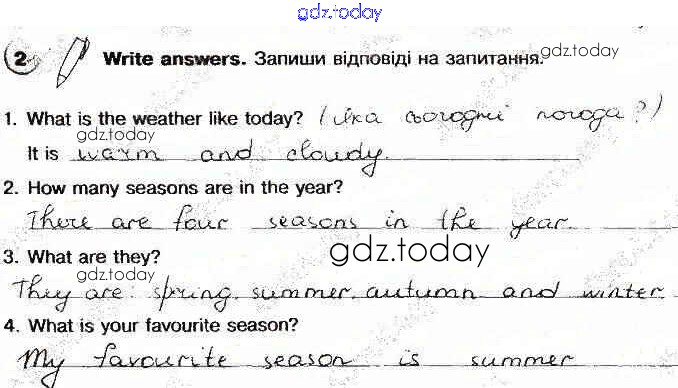 gdz.today
2 Write answers. Запиши відповіді на запитання. gdz.today
1. What is the weather like today? (яка сьогодні погода?)
gdz.today
It is warm and cloudy.
2. How many seasons are in the year?
There are four seasons in the year.
3. What are they? gdz.today
gdz.today
They are: spring, summer, autumn and winter.
4. What is your favourite season?
My favourite season is summer